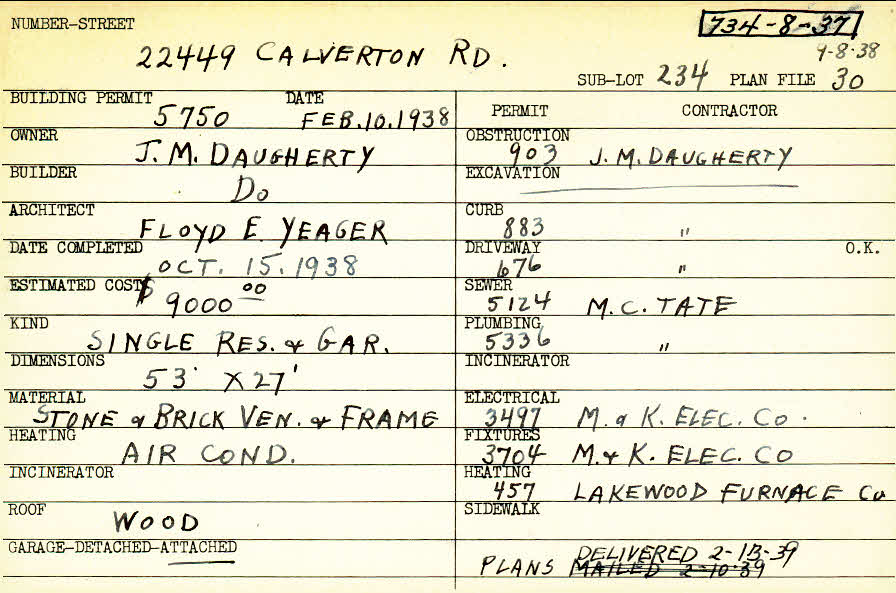 NUMBER-STREET
734-8-37
22449 CALVERTON RD.
9-8-38
SUB-LOT 234 PLAN FILE 30
BUILDING PERMIT DATE
5750 FEB.10.1938
OWNER
J. M. DAUGHERTY
BUILDER
Do
ARCHITECT
FLOYD E. YEAGER
DATE COMPLETED
OCT. 15. 1938
ESTIMATED COST
$9000 00
KIND
SINGLE RES. & GAR.
DIMENSIONS
53' X 27'
MATERIAL
STONE & BRICK VEN. & FRAME
HEATING
AIR COND.
INCINERATOR
ROOF
WOOD
GARAGE-DETACHED-ATTACHED
PERMIT CONTRACTOR
OBSTRUCTION
903 J. M. DAUGHERTY
EXCAVATION
CURB
883 "
DRIVEWAY O.K.
676 "
SEWER
5124 M. C. TATE
PLUMBING
5336 "
INCINERATOR
ELECTRICAL
3497 M. & K. ELEC. CO.
FIXTURES
3704 M. & K. ELEC. CO
HEATING
457 LAKEWOOD FURNACE Co
SIDEWALK
DELIVERED 2-13-39
PLANS MAILED 2-10-39